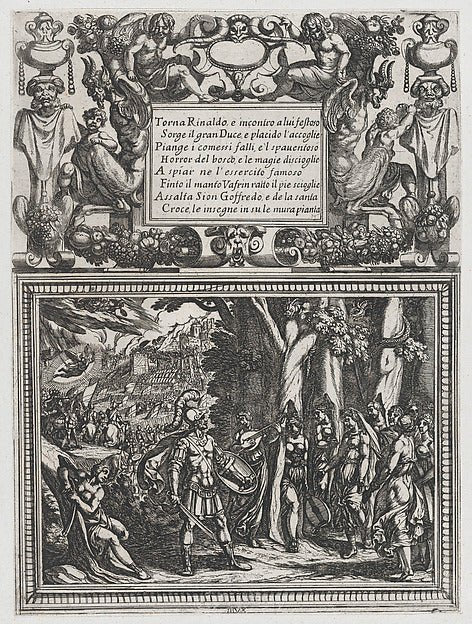 Torna Rinaldo, e incontro a lui festoso
Sorge il gran Duce, e placido l'accoglie
Piange i comessi falli, e'l spauentoso
Horror del bosco, e le magie discioglie
A spiar ne l'essercito famoso
Finto il manto Vafrin ratto il pie scioglie
Assalta Sion Goffredo, e de la santa
Croce, le insegne in su le mura pianta